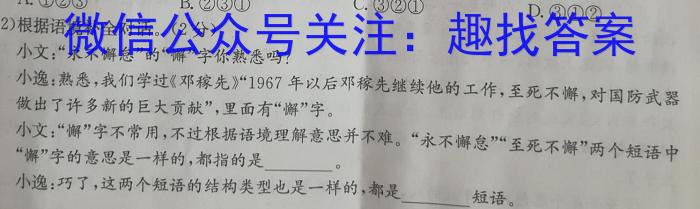 A. ①②③ B. ②③① C. ③②① D. ③①②
2)根据语境补全对话。(2分)
微信公众号关注：趣找答案
小文：“永不懈怠”的“懈”字你熟悉吗？
小逸：熟悉，我们学过《邓稼先》“1967年以后邓稼先继续他的工作，至死不懈，对国防武器
做出了许多新的巨大贡献”，里面有“懈”字。
小文：“懈”字不常用，不过根据语境理解意思并不难。“永不懈怠”“至死不懈”两个短语中
“懈”字的意思是一样的，都指的是______。
小逸：巧了，这两个短语的结构类型也是一样的，都是______短语。